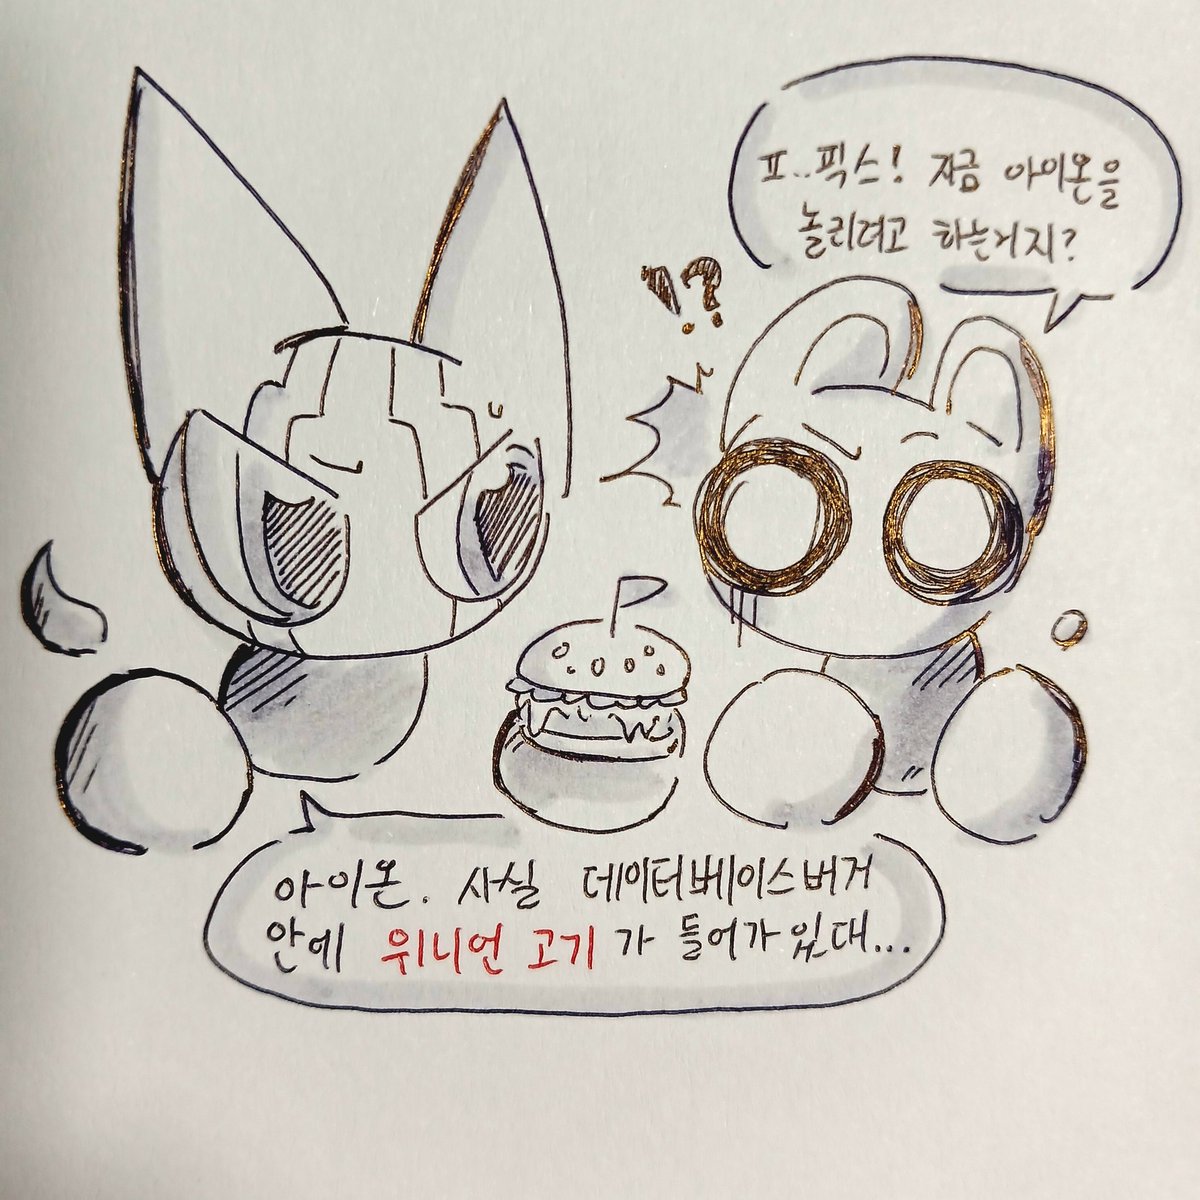 ㅍ..픽스! 지금 아이온을
놀리려고 하는거지?
!?
아이온. 사실 데이터베이스버거
안에 위니언 고기가 들어가있대...